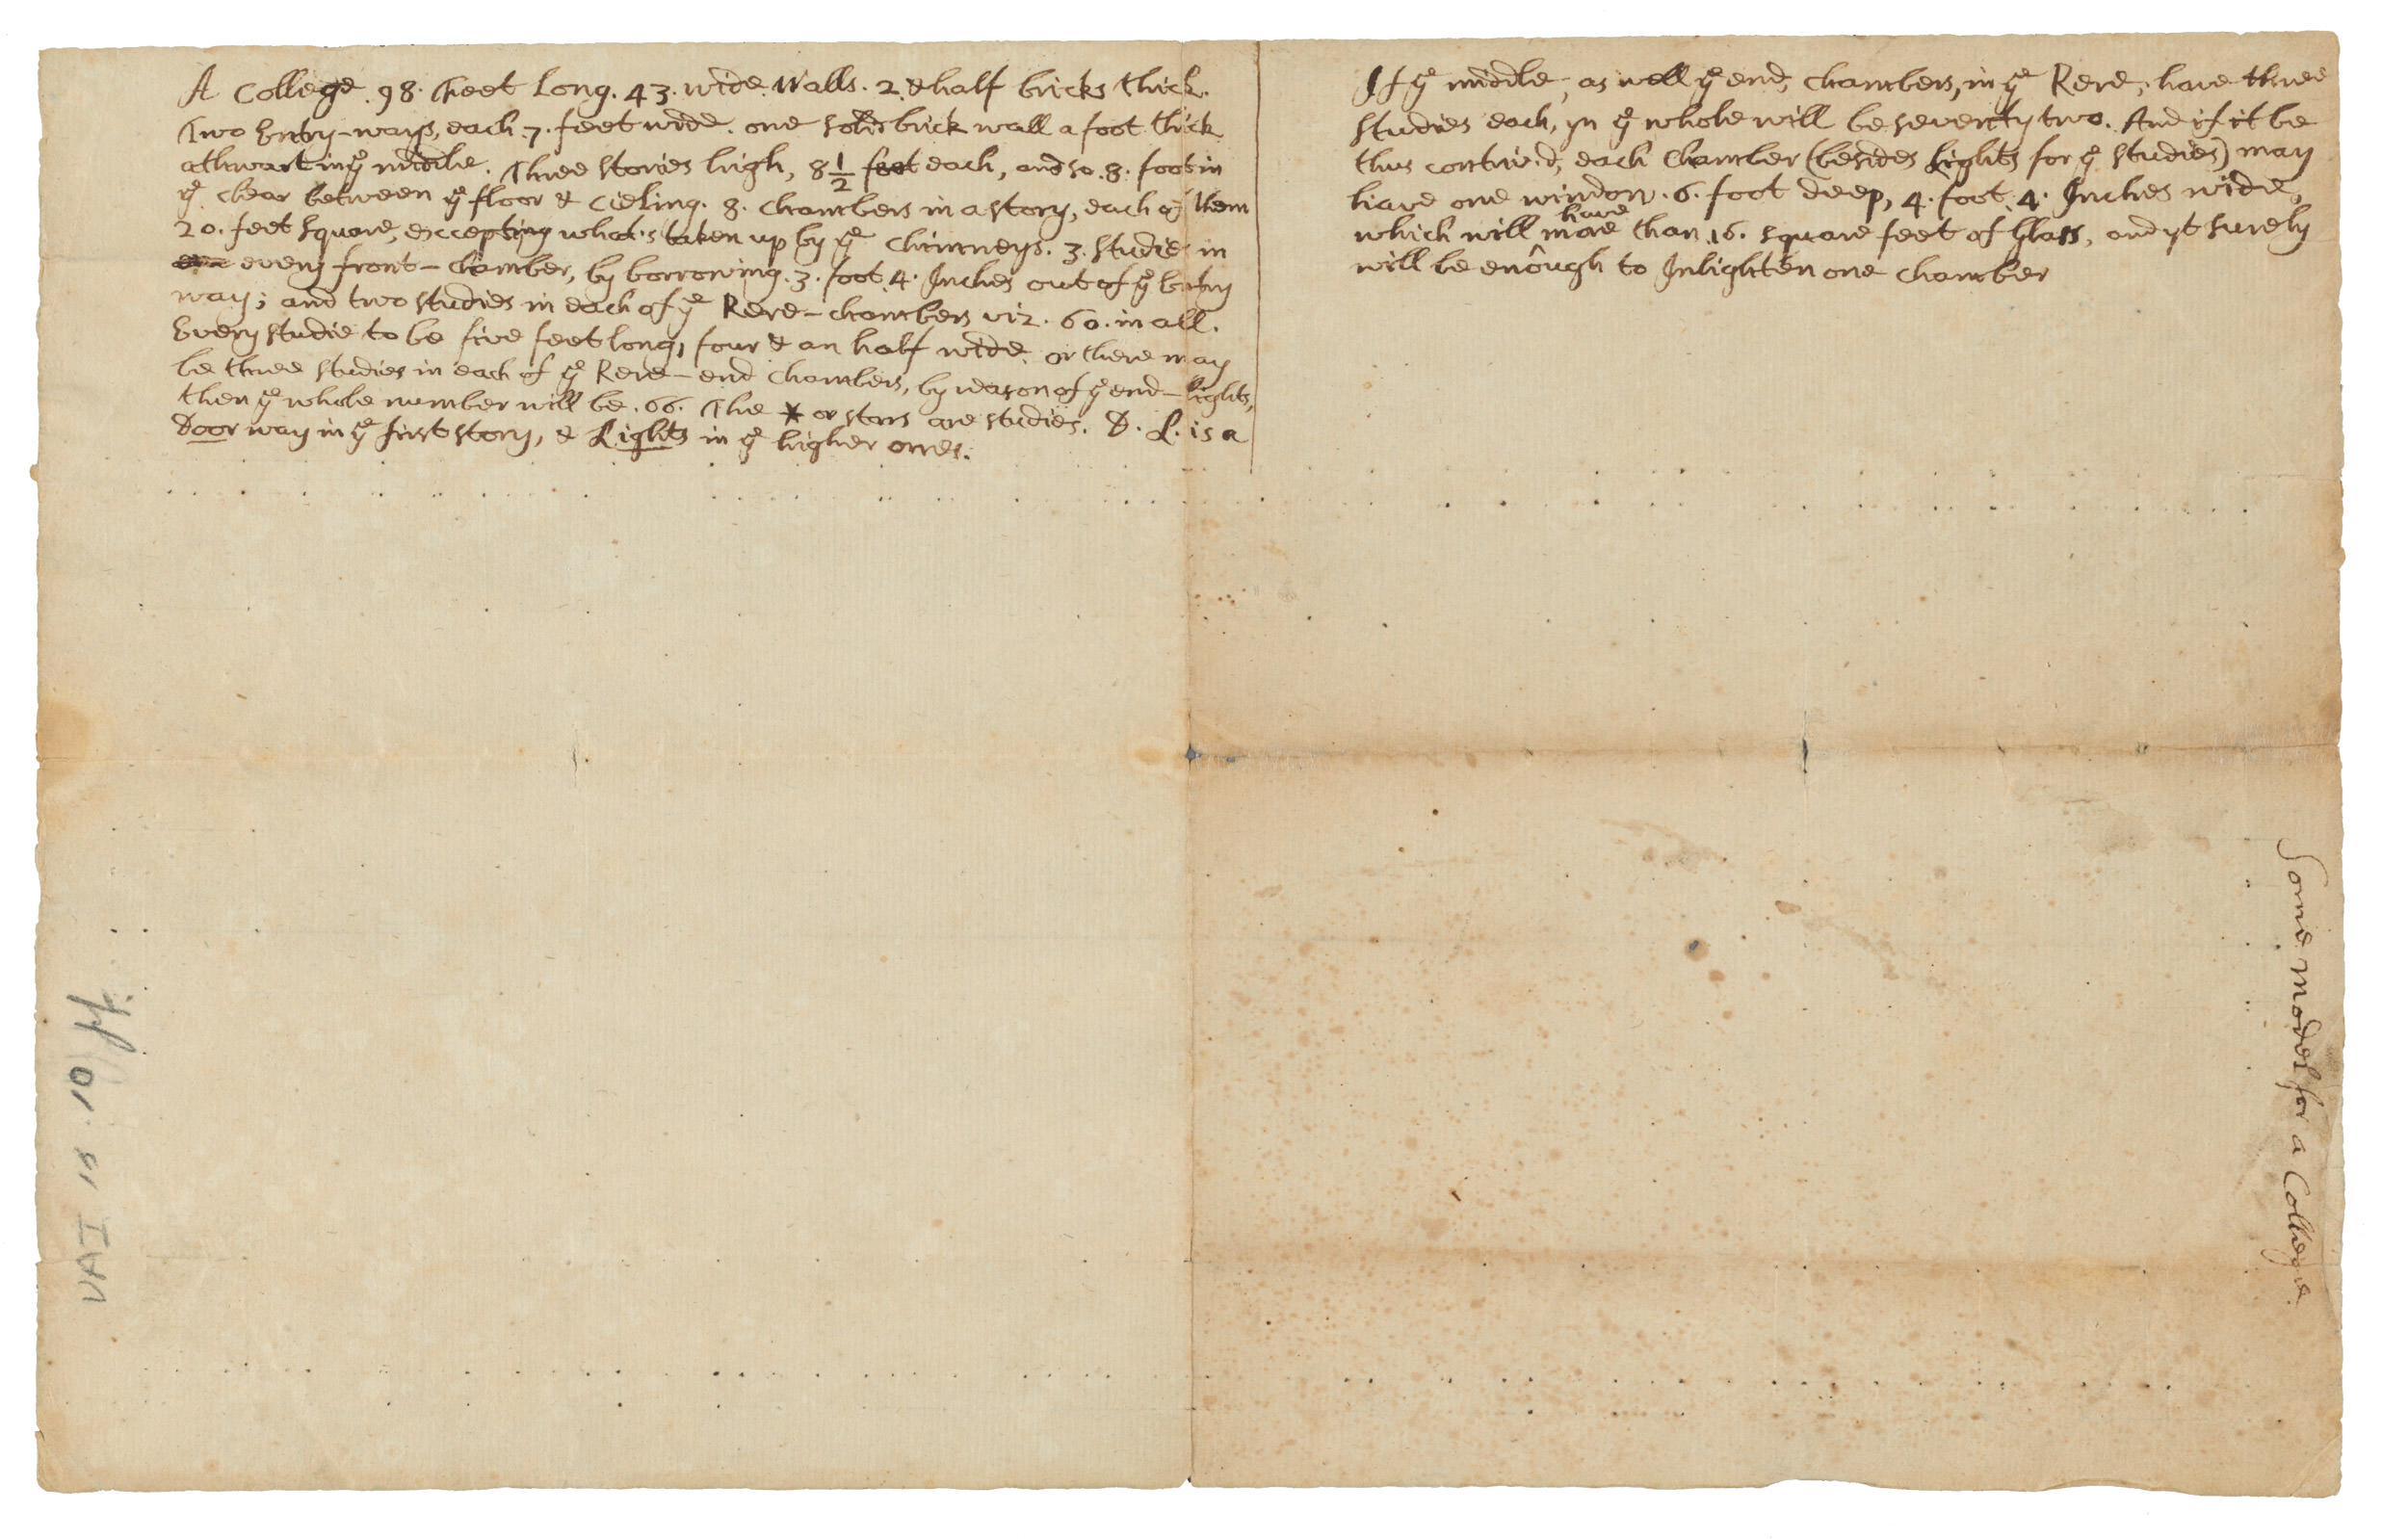 A College. 98. Feet Long. 43. wide. Walls. 2. & half bricks thick.
Two Entry-ways, each. 7. feet wide. one solid brick wall a foot thick
athwart in yͤ middle. Three stories high, 8 1/2 feet each, and so .8. foot in
yͤ clear between yͤ floor & Cieling. 8. Chambers in a story, each of them
20. feet square, excepting what's taken up by yͤ Chimneys. 3. Studies in
every front-chamber, by borrowing. 3. foot. 4. Inches out of yͤ Entry
way; and two studies in each of yͤ Rere-chambers viz. 60. in all.
Every studie to be five feet long, four & an half wide. or there may
be three studies in each of yͤ Rere-end Chambers, by reason of yͤ end-lights,
then yͤ whole number will be. 66. The * or stars are studies. D. L. is a
Door way in yͤ first story, & Lights in yͤ higher ones.
If yͤ middle, as well yͤ end, chambers, in yͤ Rere, have three
studies each, yn yͤ whole will be seventy two. And if it be
thus contriv'd, each Chamber (besides Lights for yͤ studies) may
have one window. 6. foot deep, 4. foot. 4. Inches wide,
which will have more than .16. square feet of Glass, and yt surely
will be enough to Inlighten one chamber
Some model for a College.
UAI 15. 10